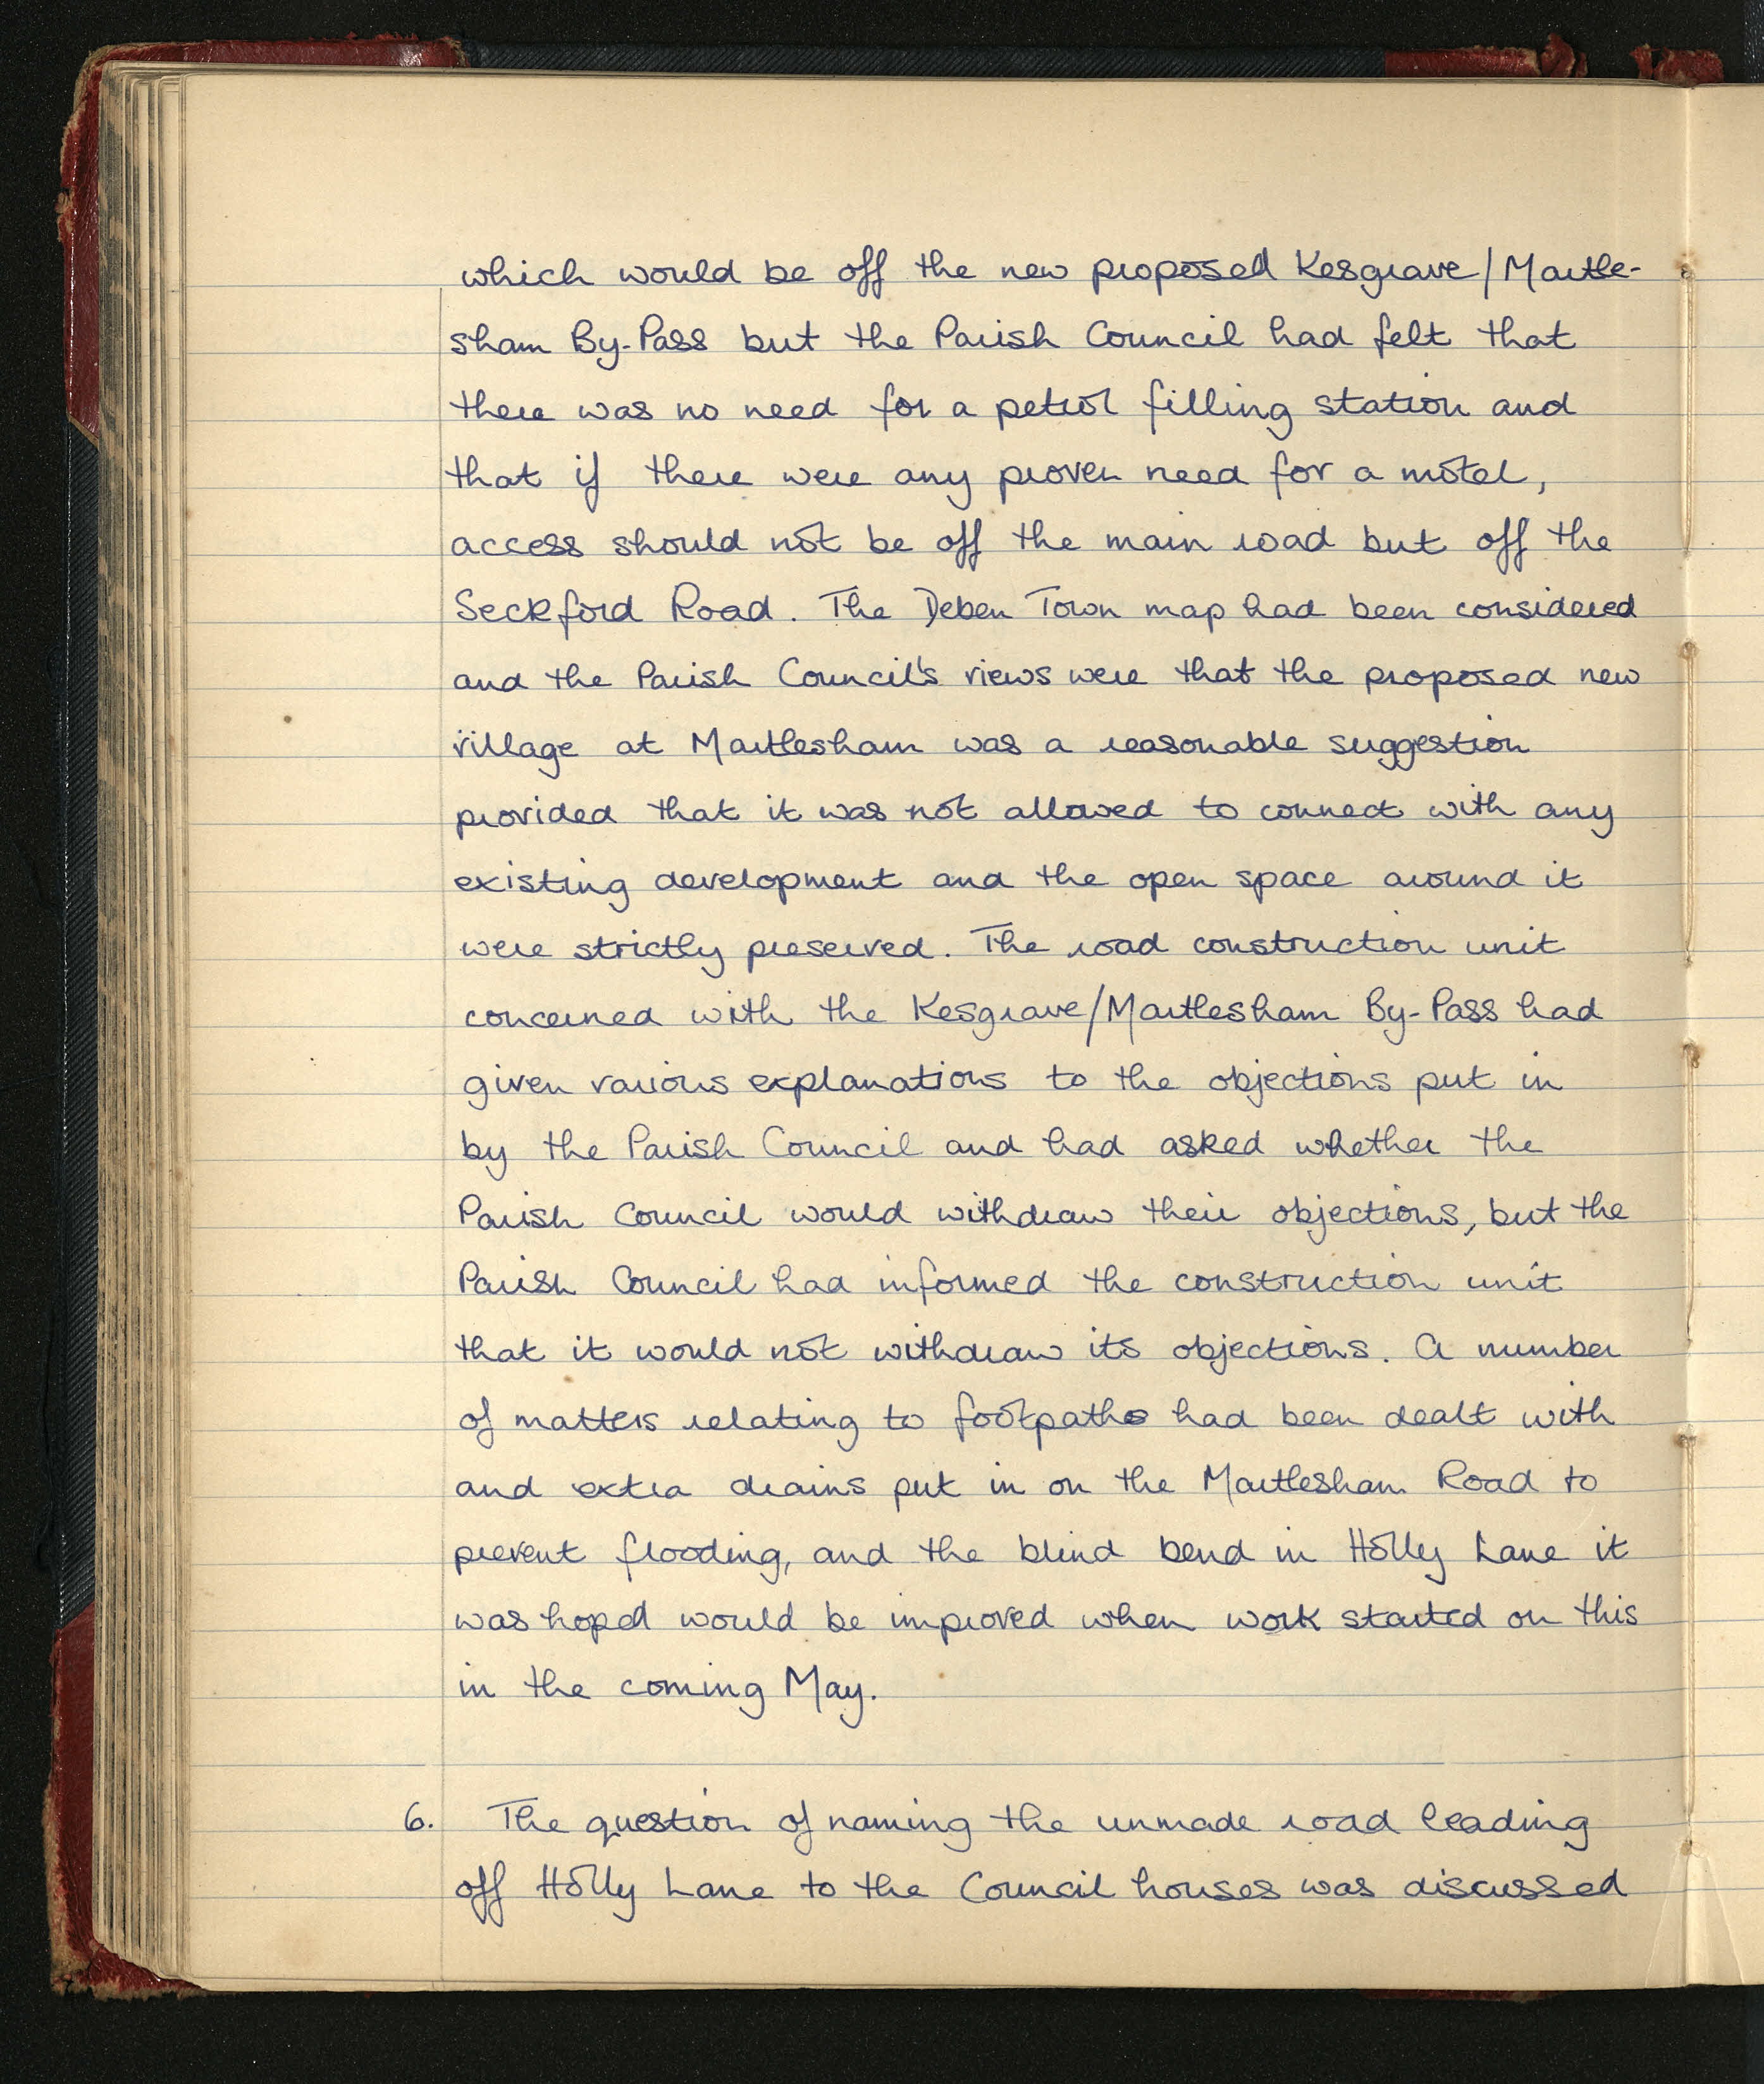 which would be off the new proposed Kesgrave/Martle-
sham By-Pass but the Parish Council had felt that
there was no need for a petrol filling station and
that if there were any proven need for a motel,
access should not be off the main road but off the
Seckford Road. The Deben Town map had been considered
and the Parish Council's views were that the proposed new
village at Martlesham was a reasonable suggestion
provided that it was not allowed to connect with any
existing development and the open space around it
were strictly preserved. The road construction unit
concerned with the Kesgrave/Martlesham By-Pass had
given various explanations to the objections put in
by the Parish Council and had asked whether the
Parish Council would withdraw their objections, but the
Parish Council had informed the construction unit
that it would not withdraw its objections. A number
of matters relating to footpaths had been dealt with
and extra drains put in on the Martlesham Road to
prevent flooding, and the blind bend in Holly Lane it
was hoped would be improved when work started on this
in the coming May.
6. The question of naming the unmade road leading
off Holly Lane to the Council houses was discussed